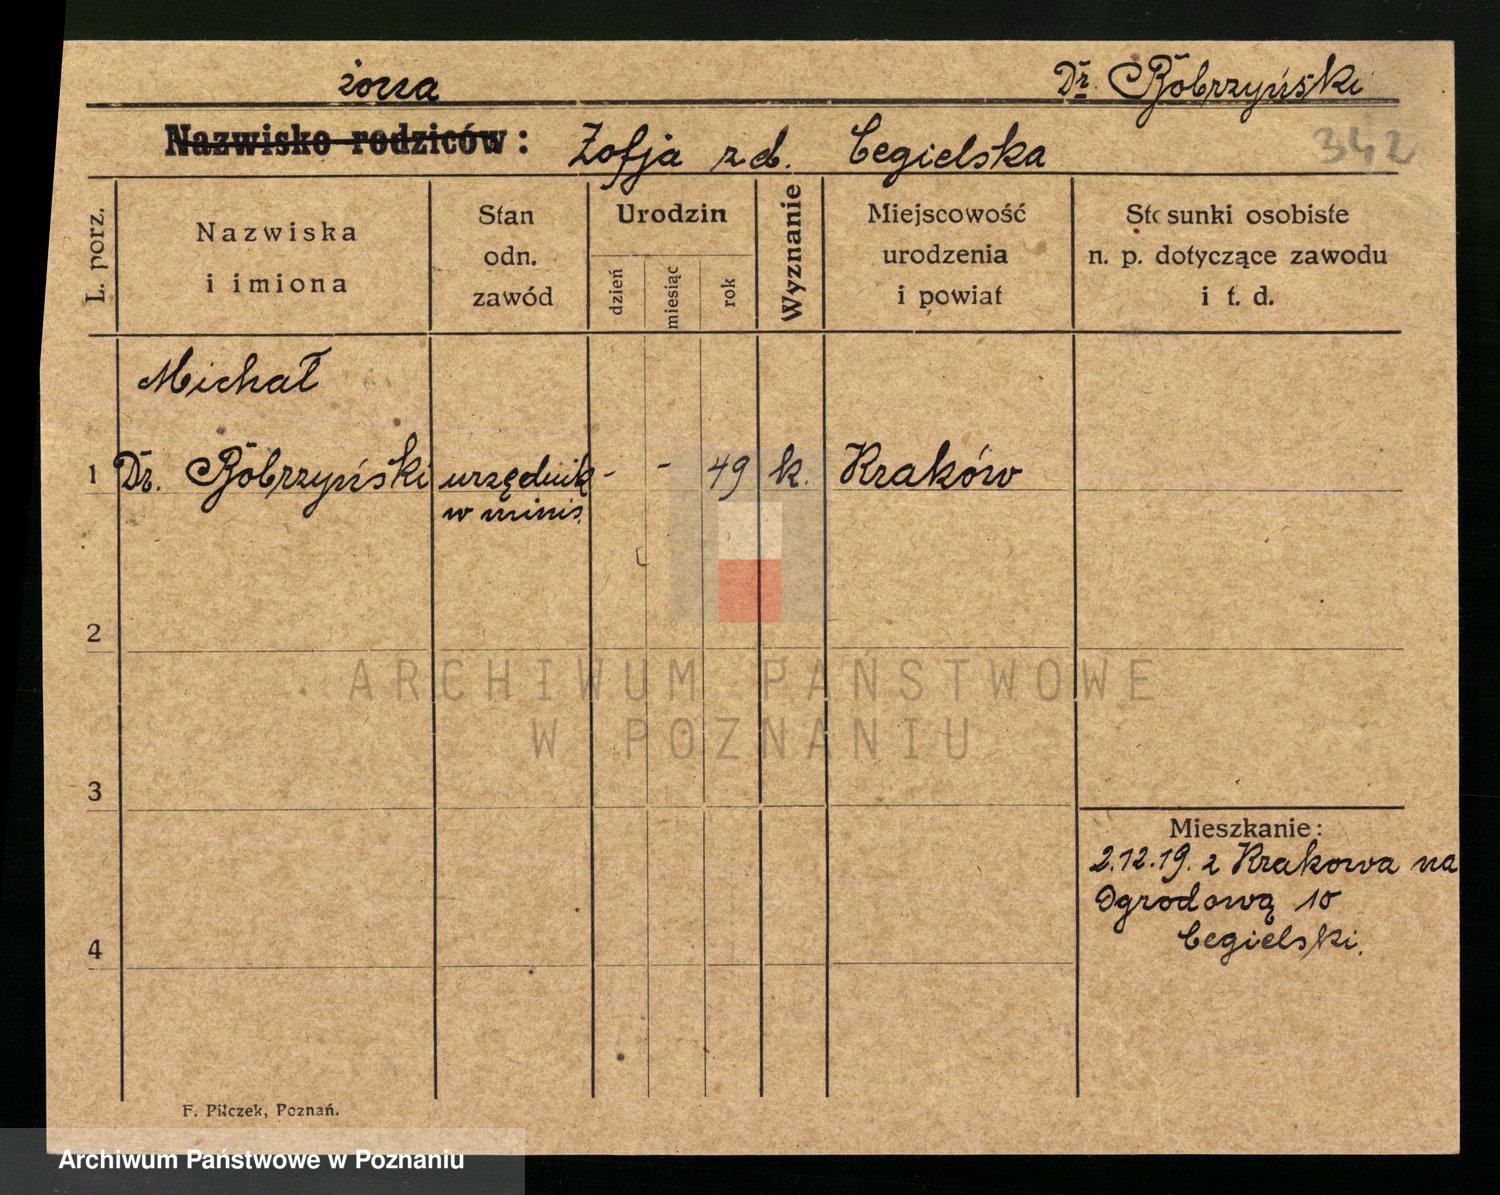 żona
Dr. Bobrzyński
Nazwisko rodziców:
Zofja z d. Cegielska
342
L. porz.
Nazwiska
i imiona
Stan
odn.
zawód
Urodzin
dzień
miesiąc
rok
Wyznanie
Miejscowość
urodzenia
i powiat
Stosunki osobiste
n. p. dotyczące zawodu
i t. d.
Michał
1 Dr. Bobrzyński urzędnik - - 49 k. Kraków
w minis.
2
ARCHIWUM PAŃSTWOWE
W POZNANIU
3
Mieszkanie:
2.12.19. z Krakowa na
Ogrodową 10
Cegielski.
4
F. Pilczek, Poznań.
Archiwum Państwowe w Poznaniu